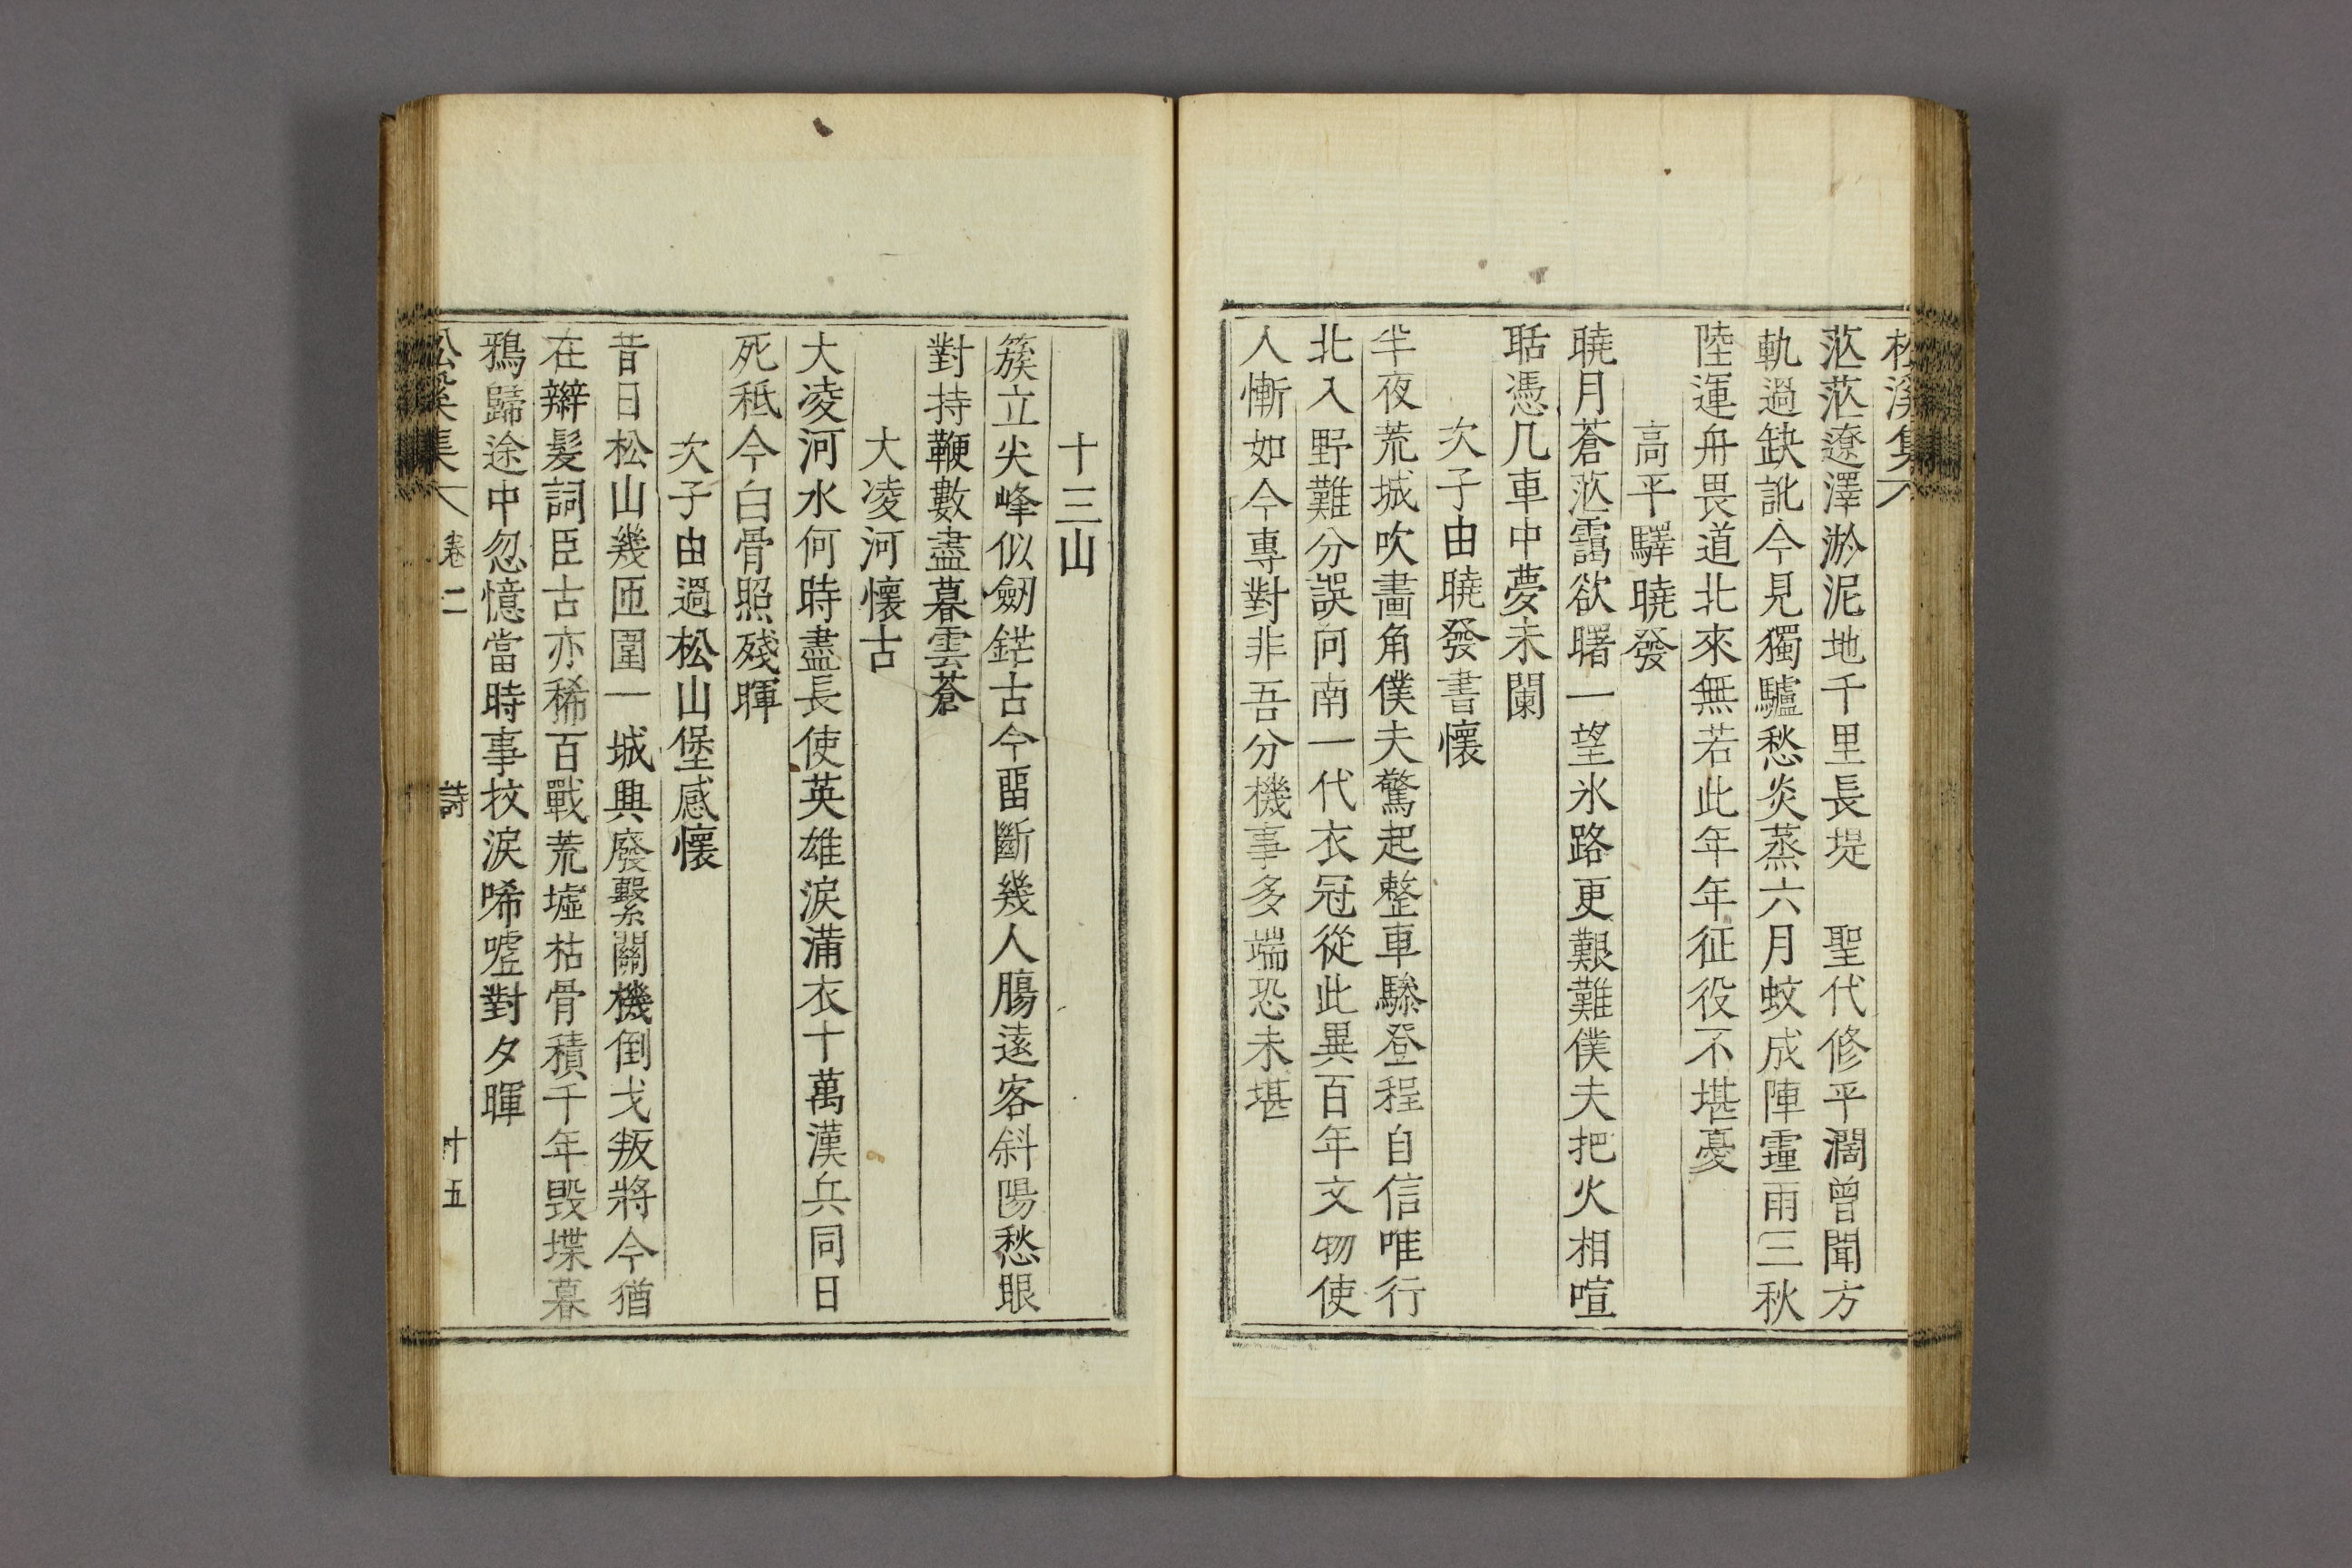 松溪集
茫茫遼澤淤泥地千里長堤　聖代修平濶曾聞方
軌過缺訛今見獨驢愁炎蒸六月蚊成陣霾雨三秋
陸運舟畏道北來無若此年年征役不堪憂
高平驛曉發
曉月蒼茫靄欲曙一望氷路更艱難僕夫把火相喧
聒憑几車中夢未闌
次子由曉發書懷
半夜荒城吹畵角僕夫驚起整車驂登程自信唯行
北入野難分誤向南一代衣冠從此異百年文物使
人慚如今專對非吾分機事多端恐未堪
十三山
簇立尖峰似劒鋩古今畱斷幾人膓遠客斜陽愁眼
對持鞭數盡暮雲蒼
大凌河懷古
大凌河水何時盡長使英雄淚滿衣十萬漢兵同日
死秪今白骨照殘暉
次子由過松山堡感懷
昔日松山幾匝圍一城興廢繫關機倒戈叛將今猶
在辮髮詞臣古亦稀百戰荒墟枯骨積千年毀堞暮
鴉歸途中忽憶當時事抆淚唏噓對夕暉
松溪集 卷二 詩 十五